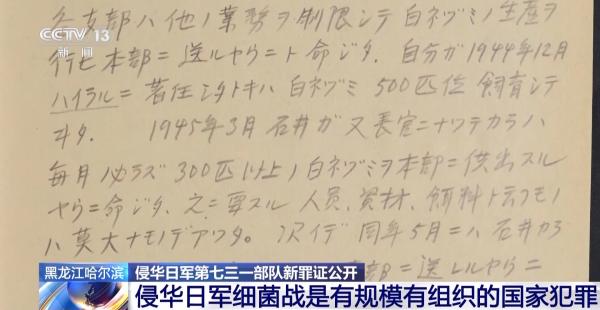 CCTV 13
新闻
各支部ハ他ノ業務ヲ制限シテ白ネヅミノ生産ヲ
行ヒ本部ニ送ルヤウニト命ジタ。自分ガ1944年12月
ハイラルニ着任シタトキハ白ネヅミ500匹位飼育シテ
ヰタ。 1945年3月石井ガ又長官ニナツテカラハ
毎月必ラズ300匹以上ノ白ネヅミヲ本部ニ供出スル
ヤウニ命ジタ、之ニ要スル人员、資材、餌料ト云フモノ
ハ莫大ナモノデアツタ。次イデ同年5月ニハ石井カラ
部ニ送レルヤウニ
黑龙江哈尔滨
侵华日军第七三一部队新罪证公开
侵华日军细菌战是有规模有组织的国家犯罪